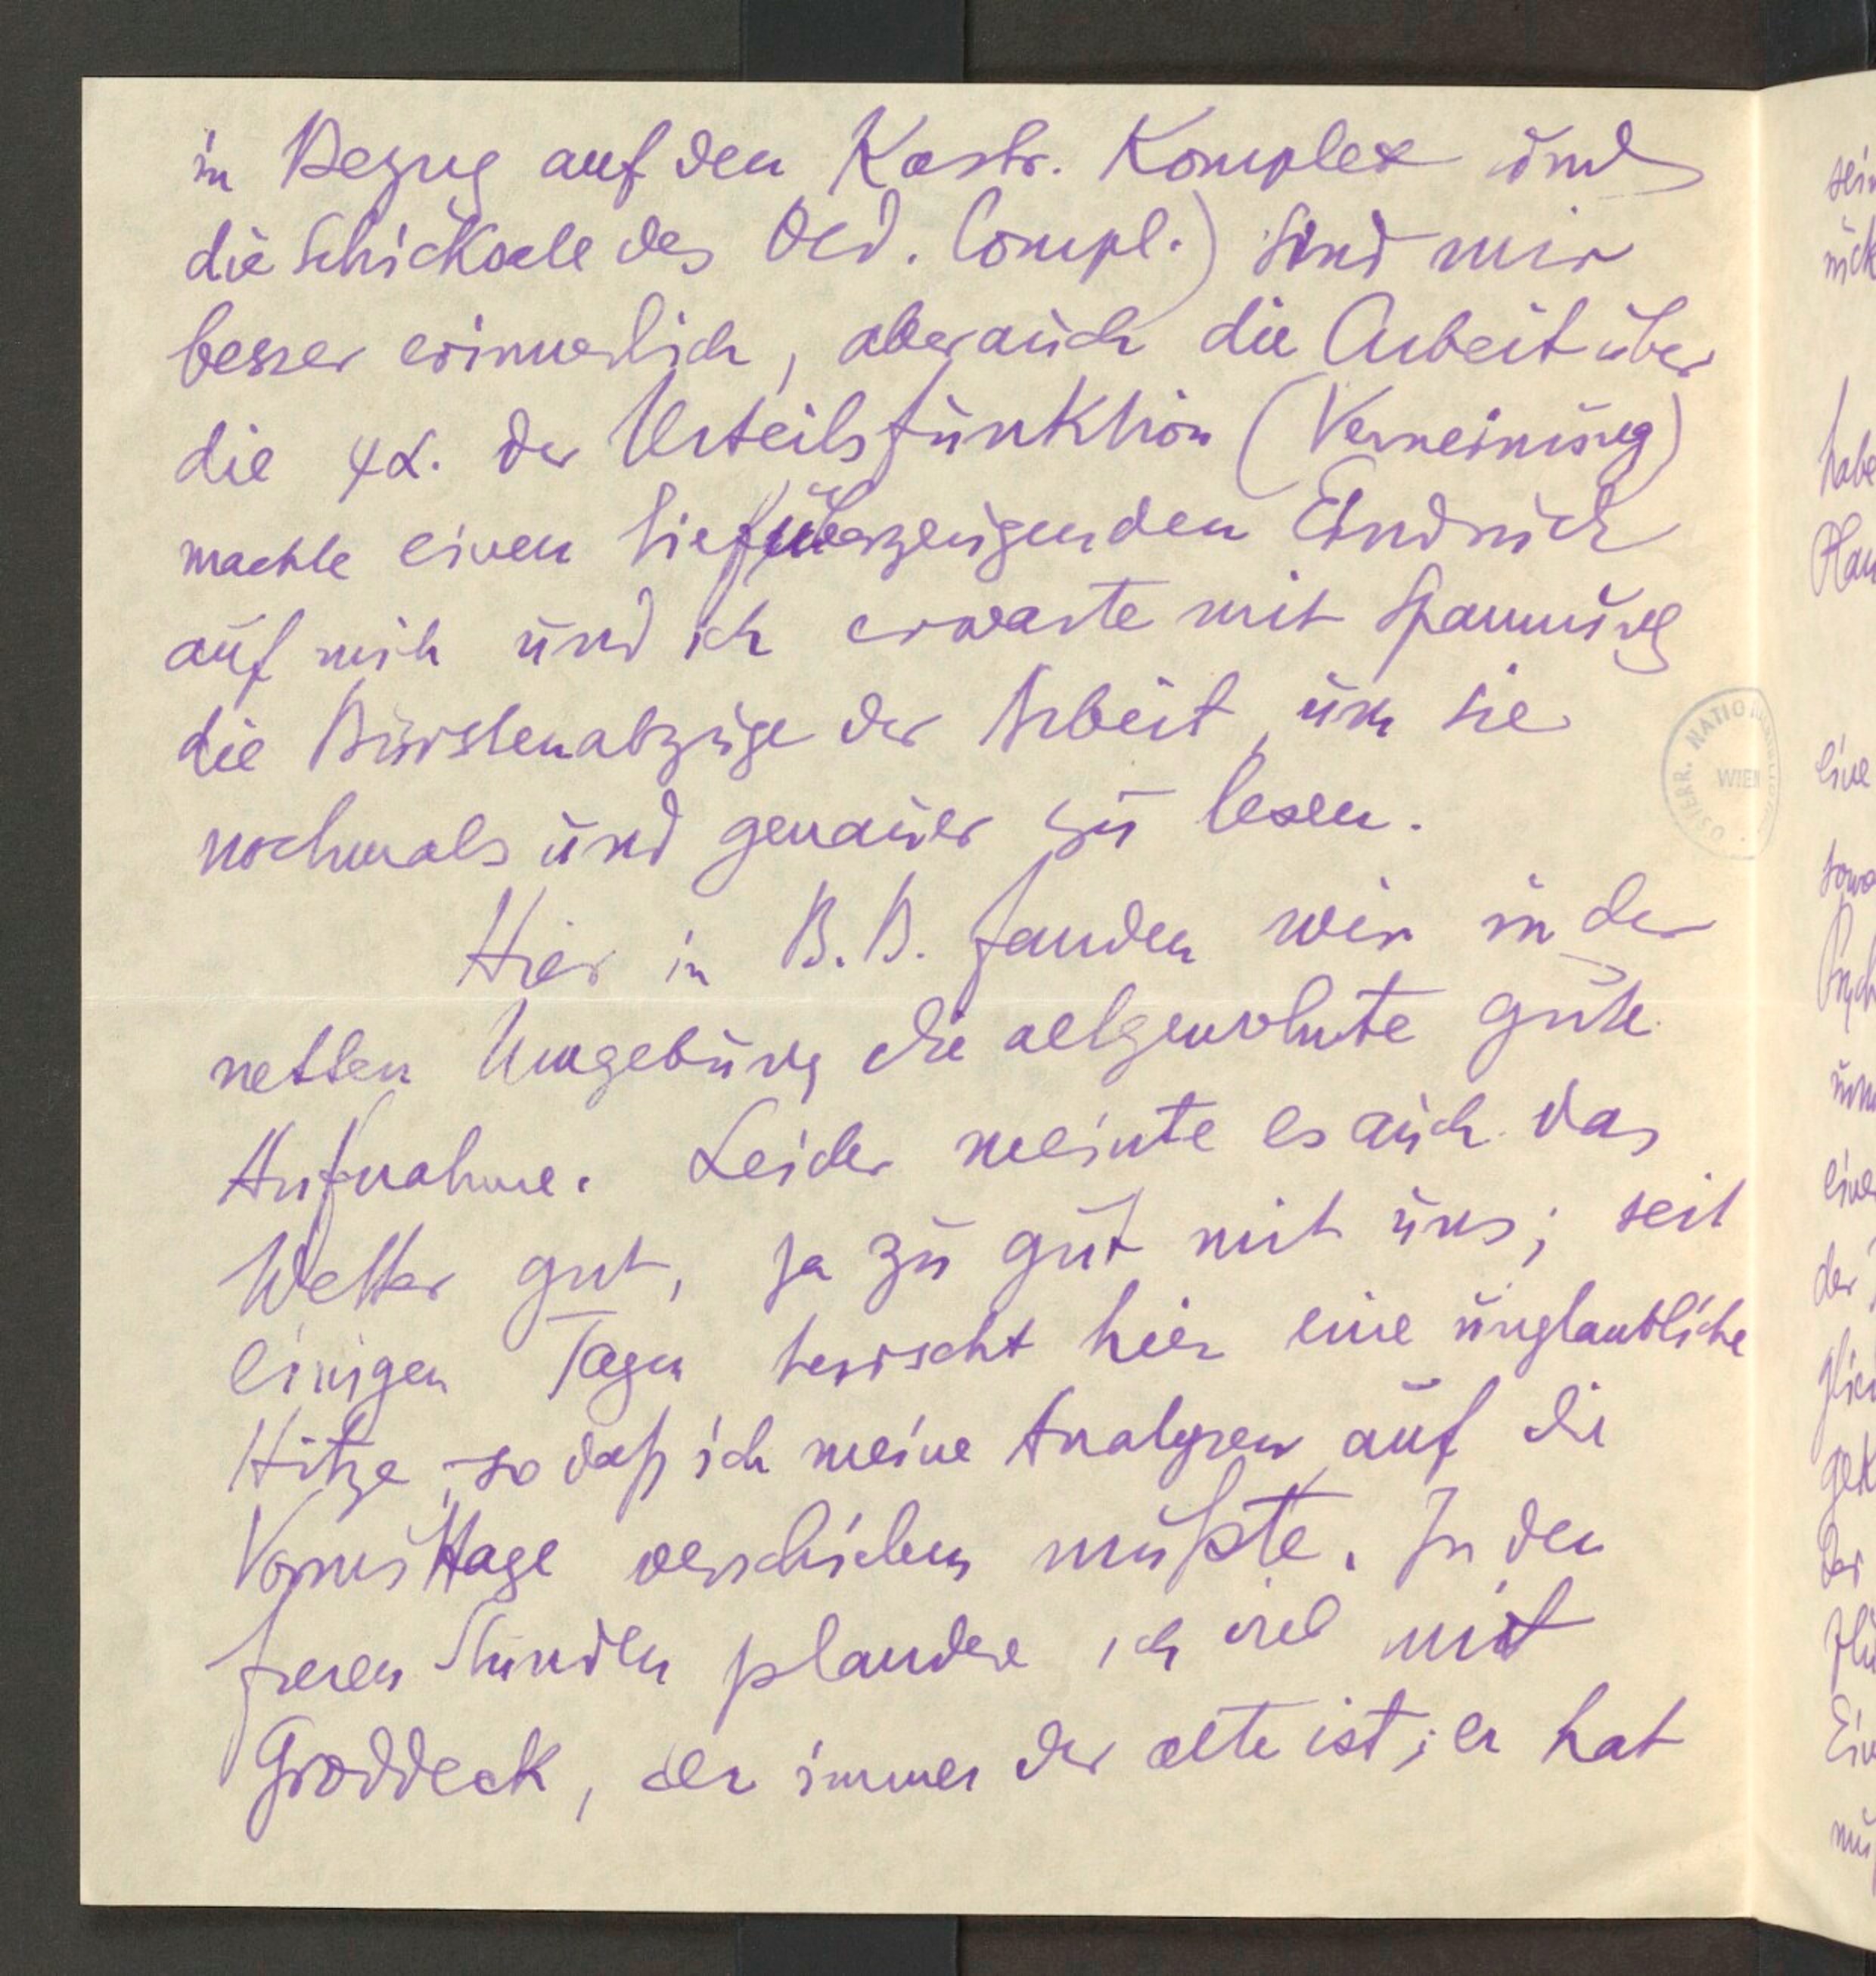 in Bezug auf den Kastr. Komplex und
die Schicksale des Oed. Compl.) sind mir
besser erinnerlich, aber auch die Arbeit über
die ψα. der Urteilsfunktion (Verneinung)
machte einen tiefüberzeugenden Eindruck
auf mich und ich erwarte mit Spannung
die Bürstenabzüge der Arbeit, um sie
nochmals und genauer zu lesen.
Hier in B.B. fanden wir in der
netten Umgebung die altgewohnte gute
Aufnahme. Leider meinte es auch das
Wetter gut, ja zu gut mit uns; seit
einigen Tagen herrscht hier eine unglaubliche
Hitze, so daß ich meine Analysen auf die
Vormittage verschieben mußte. In den
freien Stunden plaudere ich viel mit
Groddeck, der immer der alte ist; er hat
ÖSTERR. NATIONALBIBLIOTHEK
WIEN